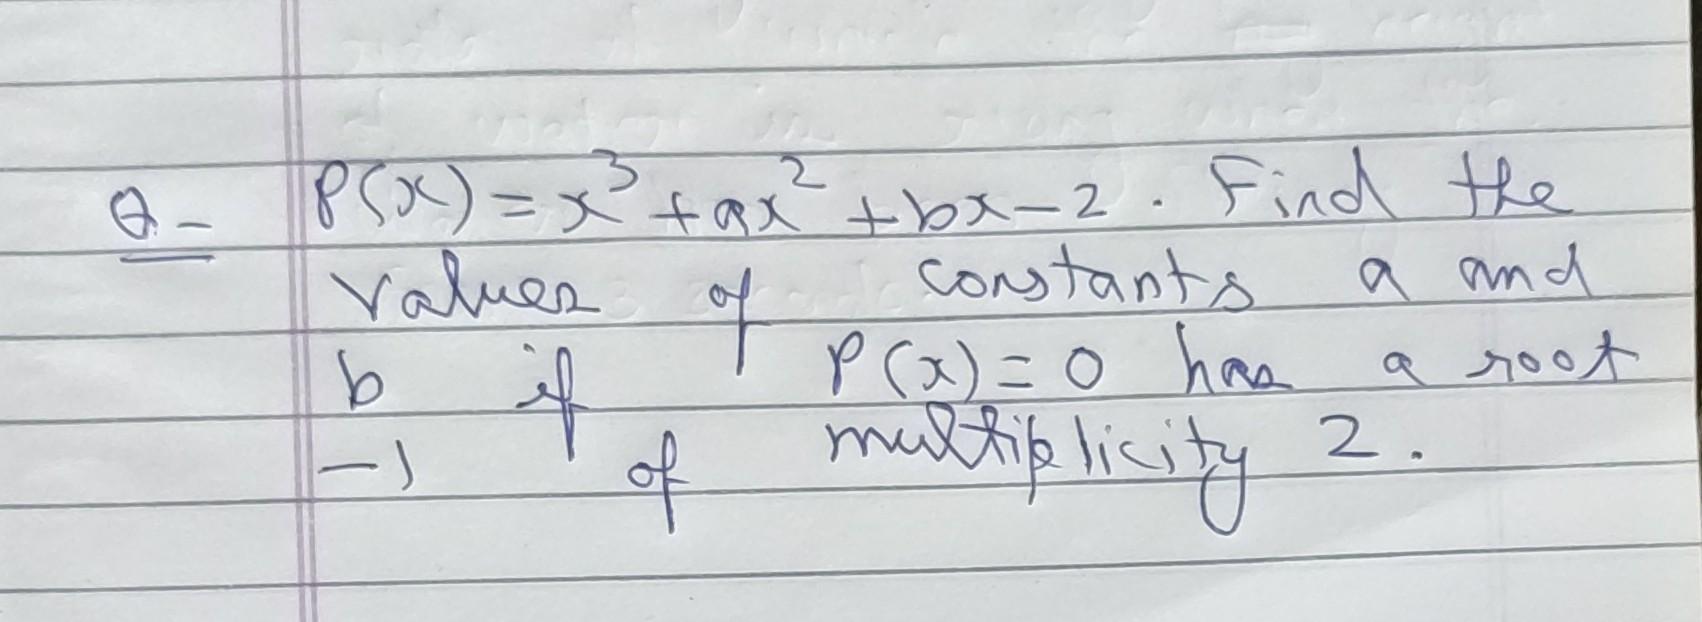 Q- P(x) = x³ + ax² + bx - 2. Find the
values of constants a and
b if P(x) = 0 has a root
-1 of multiplicity 2.